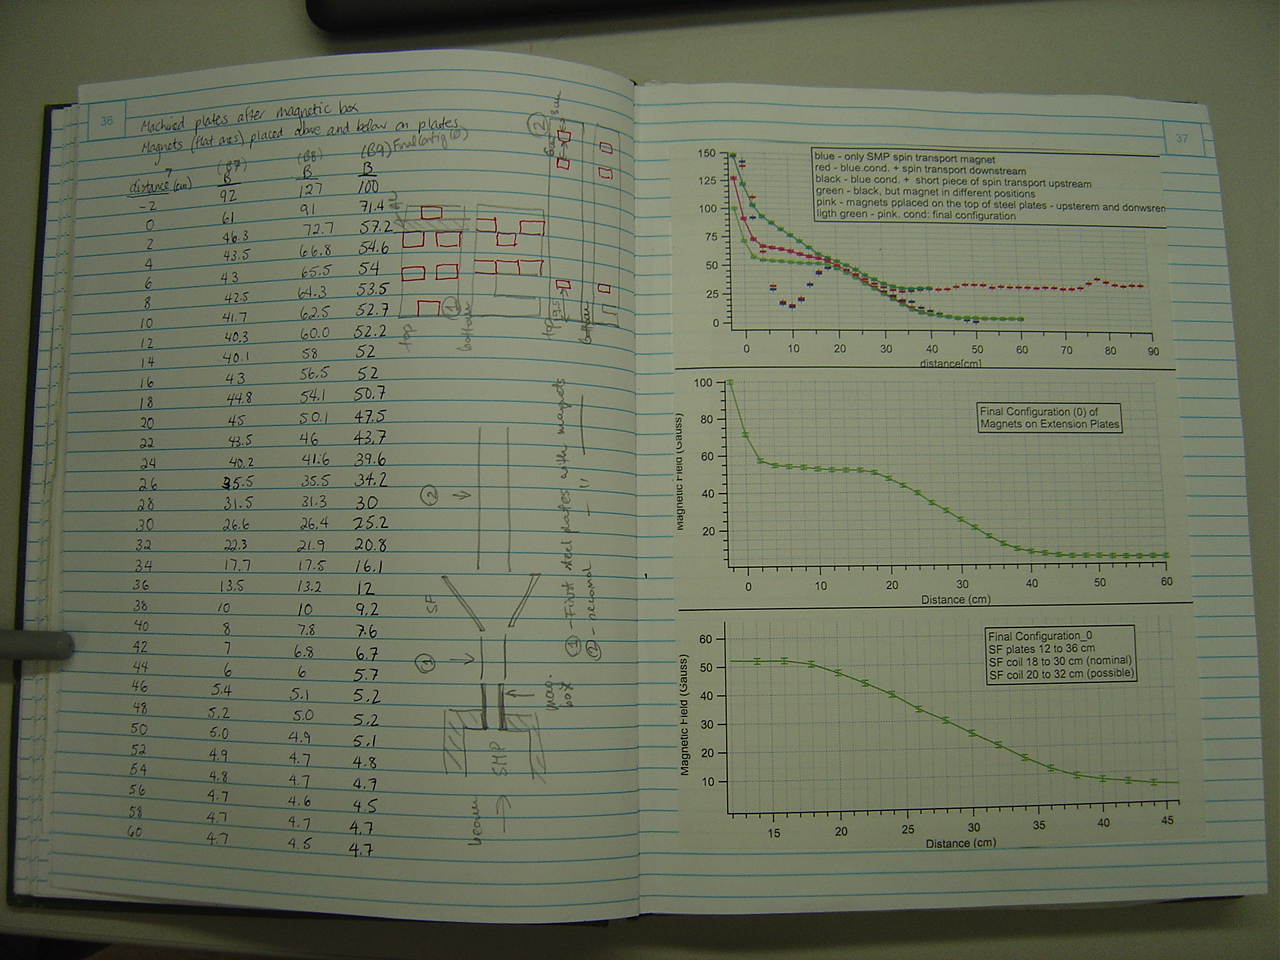 36
Machined plates after magnetic box
Magnets (flat ones) placed above and below on plates
(B7) (B8) (B9) Final Config (0)
distance (cm) B B B
-2 92 127 100
0 61 91 71.4
2 46.3 72.7 57.2
4 43.5 66.8 54.6
6 43 65.5 54
8 42.5 64.3 53.5
10 41.7 62.5 52.7
12 40.3 60.0 52.2
14 40.1 58 52
16 43 56.5 52
18 44.8 54.1 50.7
20 45 50.1 47.5
22 43.5 46 43.7
24 40.2 41.6 39.6
26 35.5 35.5 34.2
28 31.5 31.3 30
30 26.6 26.4 25.2
32 22.3 21.9 20.8
34 17.7 17.5 16.1
36 13.5 13.2 12
38 10 10 9.2
40 8 7.8 7.6
42 7 6.8 6.7
44 6 6 5.7
46 5.4 5.1 5.2
48 5.2 5.0 5.2
50 5.0 4.9 5.1
52 4.9 4.7 4.8
54 4.8 4.7 4.7
56 4.7 4.6 4.5
58 4.7 4.7 4.7
60 4.7 4.5 4.7
top
bottom
1
2
top
bottom
2
SF
1
SMP
box
beam
1 - First steel plates with magnets
2 -
37
blue - only SMP spin transport magnet
red - blue.cond. + spin transport downstream
black - blue cond. + short piece of spin transport upstream
green - black, but magnet in different positions
pink - magnets pplaced on the top of steel plates - upsterem and donwsren
ligth green - pink. cond: final configuration
150
125
100
75
50
25
0
0 10 20 30 40 50 60 70 80 90
distance[cm]
Final Configuration (0) of
Magnets on Extension Plates
Magnetic Field (Gauss)
100
80
60
40
20
0 10 20 30 40 50 60
Distance (cm)
Final Configuration_0
SF plates 12 to 36 cm
SF coil 18 to 30 cm (nominal)
SF coil 20 to 32 cm (possible)
Magnetic Field (Gauss)
60
50
40
30
20
10
15 20 25 30 35 40 45
Distance (cm)